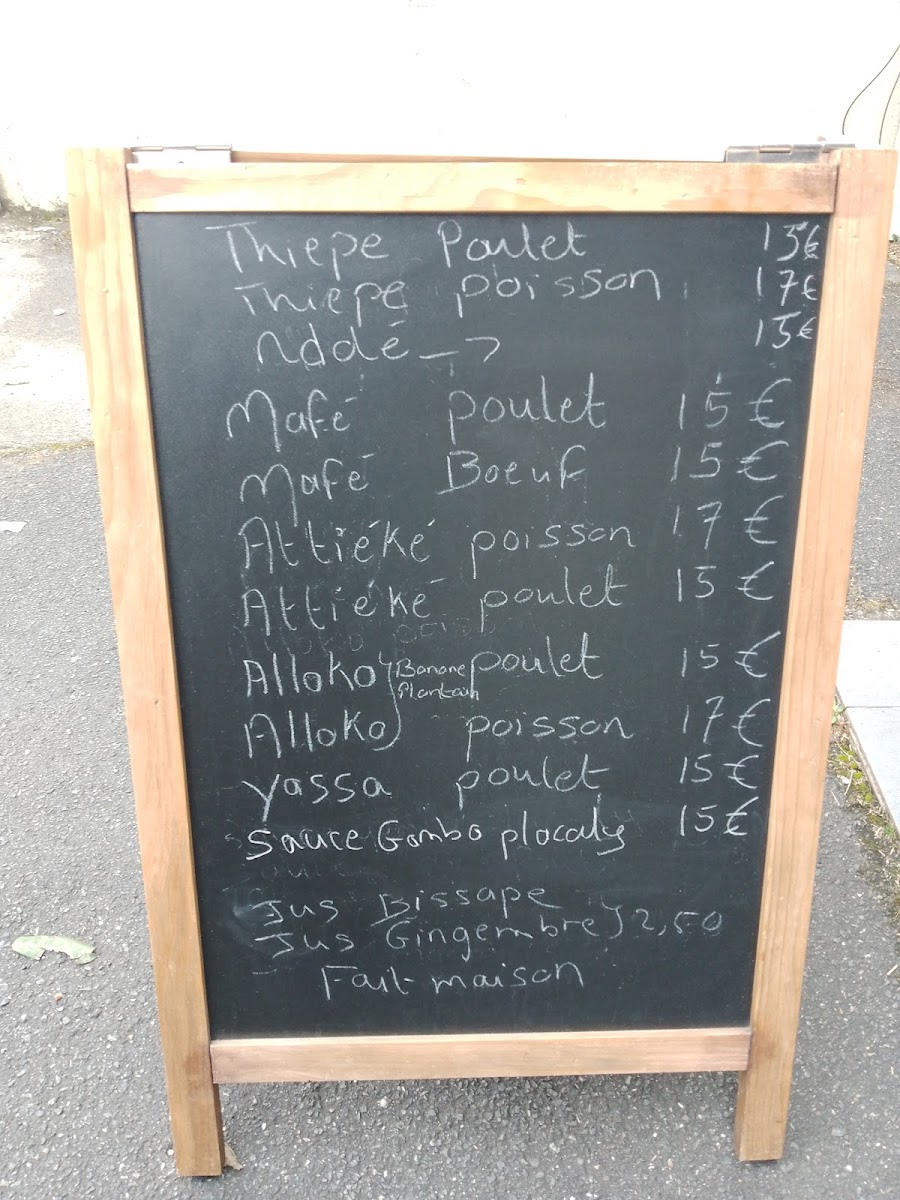 Thiepe Poulet 15€
Thiepe poisson 17€
Nddé → 15€
Mafé poulet 15€
Mafé Boeuf 15€
Attiéké poisson 17€
Attiéké poulet 15€
Alloko } Banane Plantain poulet 15€
Alloko poisson 17€
yassa poulet 15€
Sauce Gombo placaly 15€
Jus Bissape
Jus Gingembre } 2,50
Fait maison